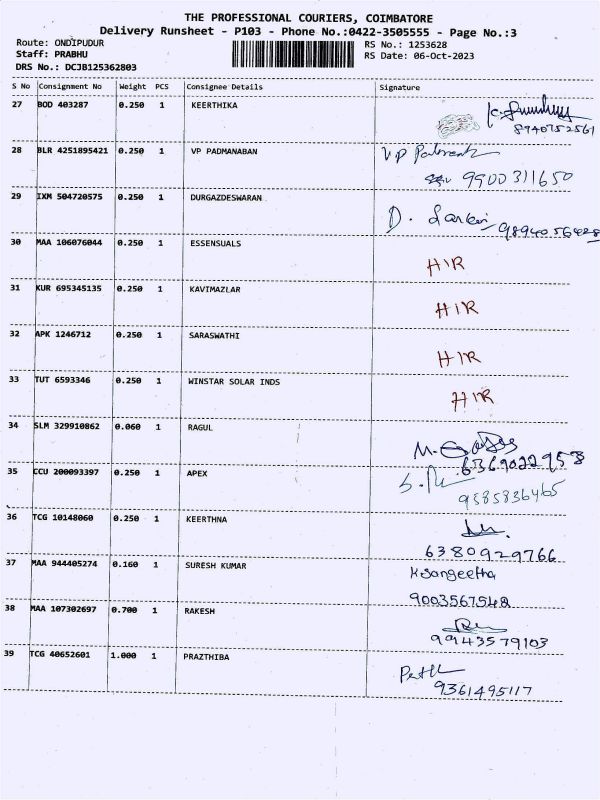 THE PROFESSIONAL COURIERS, COIMBATORE
Delivery Runsheet - P103 - Phone No.:0422-3505555 - Page No.:3
Route: ONDIPUDUR
Staff: PRABHU
DRS No.: DCJB125362803
RS No.: 1253628
RS Date: 06-Oct-2023
S No Consignment No Weight PCS Consignee Details Signature
27 BOD 403287 0.250 1 KEERTHIKA
8940752561
28 BLR 4251895421 0.250 1 VP PADMANABAN
VP
9900311650
29 IXM 504720575 0.250 1 DURGAZDESWARAN
D.
9894056428
30 MAA 106076044 0.250 1 ESSENSUALS
HIR
31 KUR 695345135 0.250 1 KAVIMAZLAR
HIR
32 APK 1246712 0.250 1 SARASWATHI
HIR
33 TUT 6593346 0.250 1 WINSTAR SOLAR INDS
HIR
34 SLM 329910862 0.060 1 RAGUL
M.
6369022953
35 CCU 200093397 0.250 1 APEX
9585836465
36 TCG 10148060 0.250 1 KEERTHNA
6380929766
37 MAA 944405274 0.160 1 SURESH KUMAR
K Sangeetha
9003567548
38 MAA 107302697 0.700 1 RAKESH
9943579103
39 TCG 40652601 1.000 1 PRAZTHIBA
9361495117